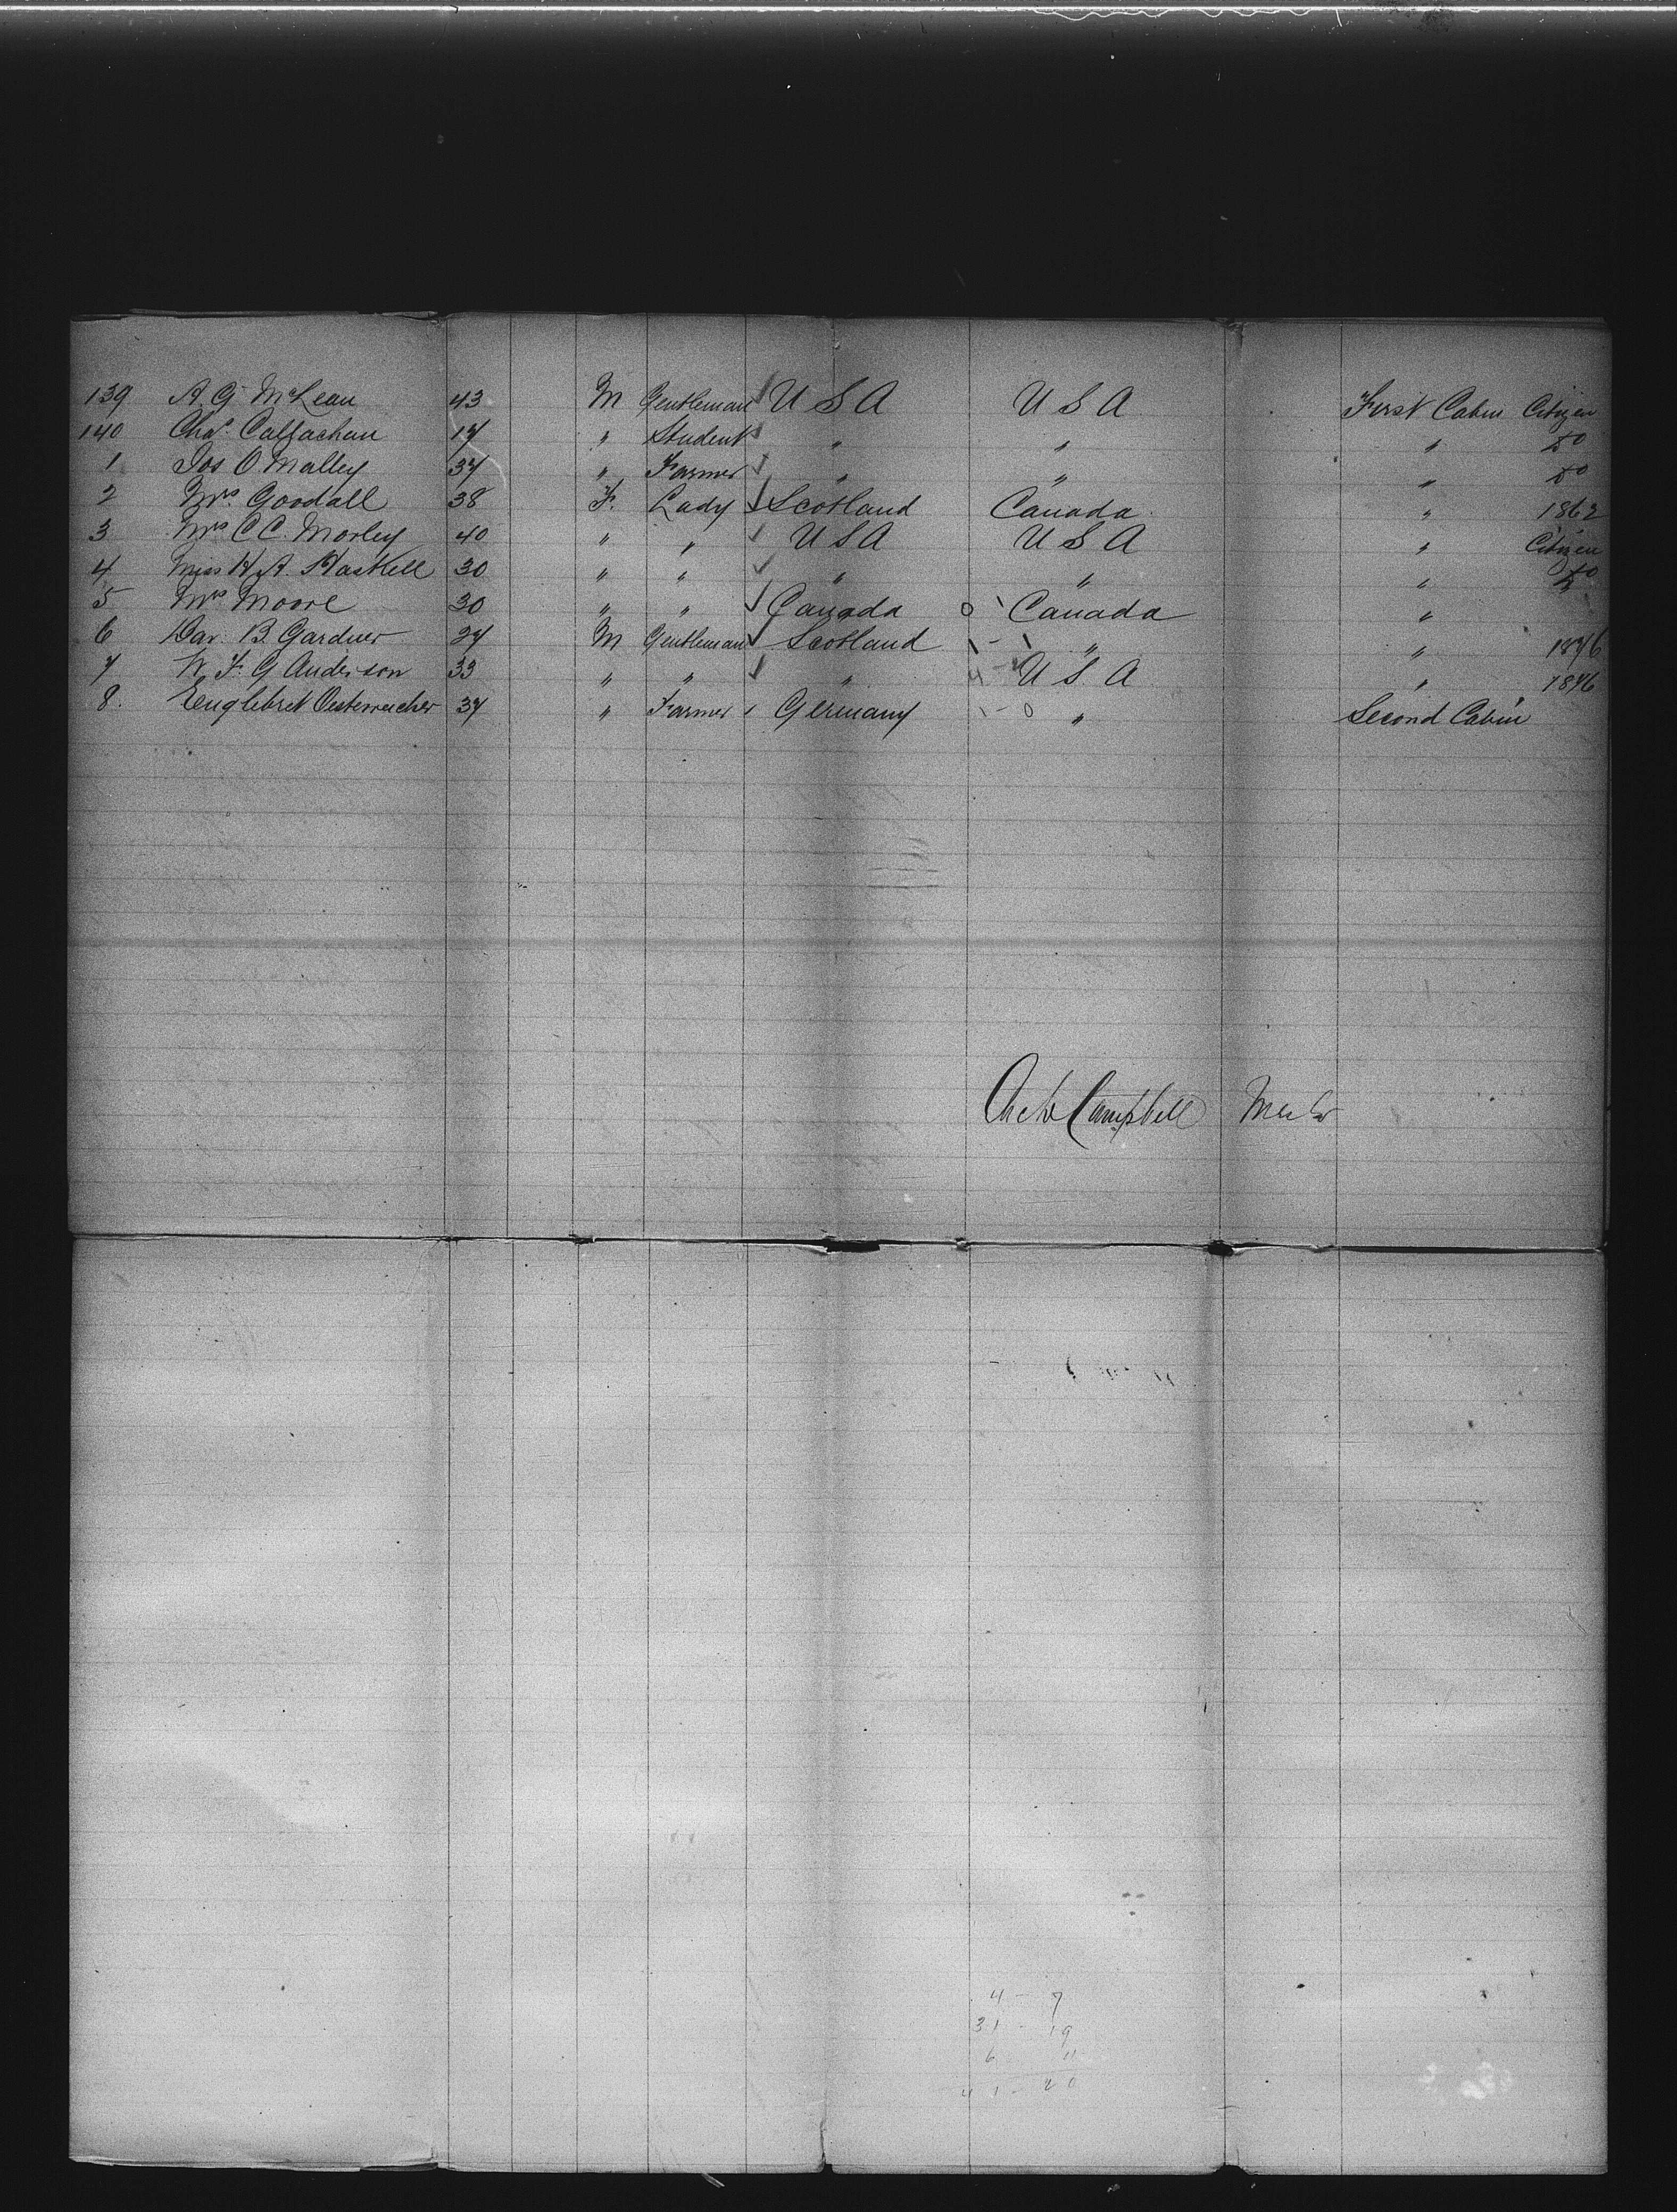 139 A. G. McLean 43 M Gentleman U S A U S A First Cabin Citizen
140 Chas. 17 " Student " " " Do
1 Jos O'Malley 37 " Farmer " " " Do
2 Mrs. Goodall 38 F. Lady Scotland Canada " 1862
3 Mrs C C. Morley 40 " " U S A U S A " Citizen
4 Miss H. A. Haskell 30 " " " " " Do
5 Mrs Moore 30 " " Canada 0 Canada "
6 Dav. B. Gardner 27 M Gentleman Scotland 1 - 1 " " 1876
7 W. F. G. Anderson 33 " " " 4 - U. S. A " 1876
8. Englebret Oesterreicher 37 " Farmer Germany 1 - 0 " Second Cabin
Campbell
4 - 7
31 - 19
6 11
41 - 20